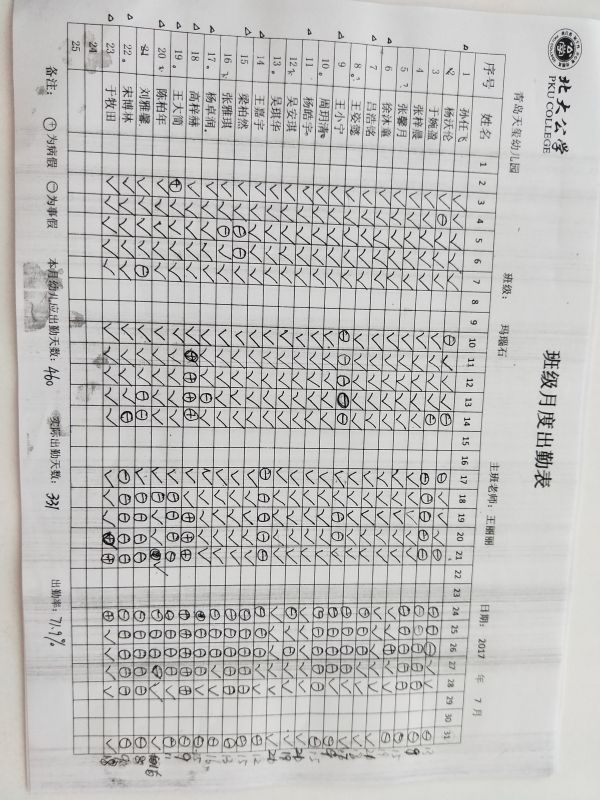 北大公学
PKU COLLEGE
班级月度出勤表
青岛天玺幼儿园 班级： 玛瑙石 主班老师：王丽丽 日期： 2017 年 7 月
序号 姓名 1 2 3 4 5 6 7 8 9 10 11 12 13 14 15 16 17 18 19 20 21 22 23 24 25 26 27 28 29 30 31
1 孙任飞
2 杨沃伦
3 于婉盈
4 张梓晨
5 张馨月
6 徐沐童
7 吕浩铭
8 王姿懿
9 王小宁
10 周玥清
11 杨皓宇
12 吴安琪
13 吴琪华
14 王嘉宇
15 梁柏然
16 张雅琪
17 杨卓润
18 高梓赫
19 王大简
20 陈柏年
21 刘雅馨
22 宋博林
23 于牧田
24
25
备注： ⊕为病假 ⊖为事假 本月幼儿应出勤天数：460 实际出勤天数：331 出勤率：71.9%